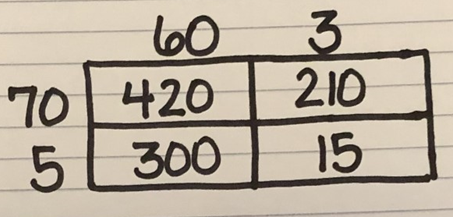 60 3
70 420 210
5 300 15